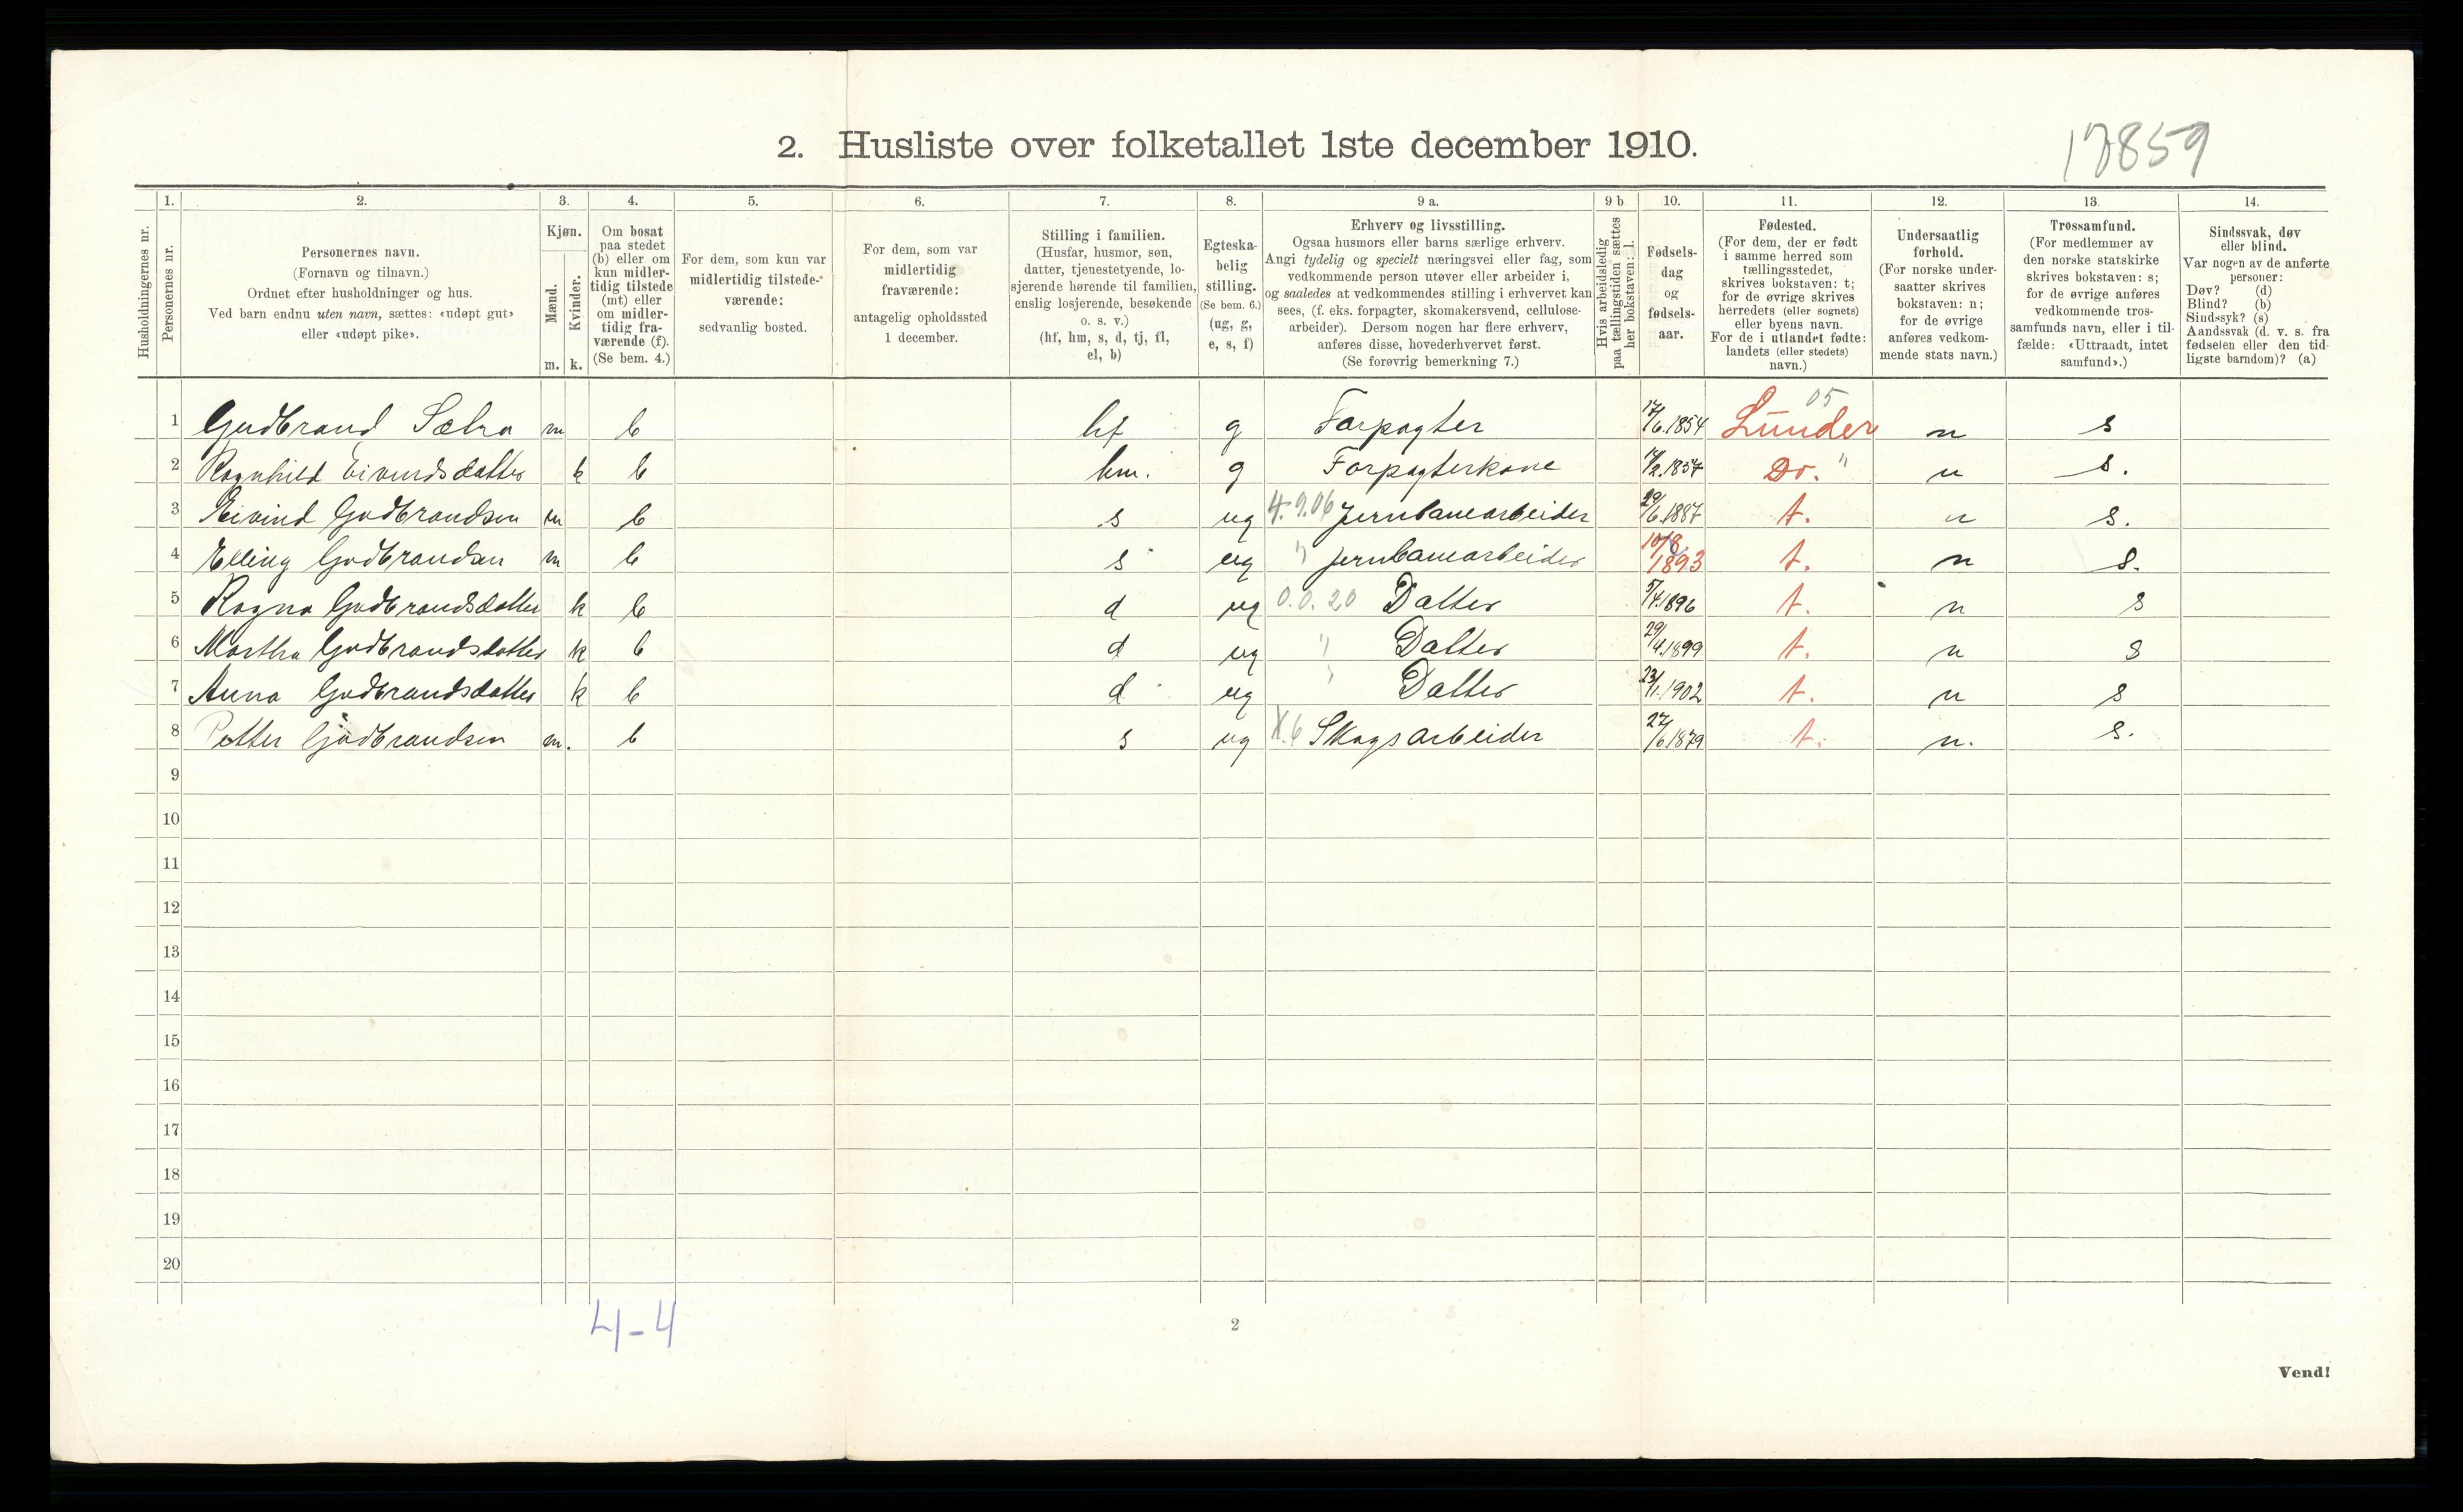 2. Husliste over folketallet 1ste december 1910.
17859
1. 2. 3. 4. 5. 6. 7. 8. 9 a. 9 b 10. 11. 12. 13. 14.
Husholdningernes nr.
Personernes nr.
Personernes navn.
(Fornavn og tilnavn.)
Ordnet efter husholdninger og hus.
Ved barn endnu uten navn, sættes: «udøpt gut»
eller «udøpt pike».
Kjøn.
Mænd.
Kvinder.
m. k.
Om bosat
paa stedet
(b) eller om
kun midler-
tidig tilstede
(mt) eller
om midler-
tidig fra-
værende (f).
(Se bem. 4.)
For dem, som kun var
midlertidig tilstede-
værende:
sedvanlig bosted.
For dem, som var
midlertidig
fraværende:
antagelig opholdssted
1 december.
Stilling i familien.
(Husfar, husmor, søn,
datter, tjenestetyende, lo-
sjerende hørende til familien,
enslig losjerende, besøkende
o. s. v.)
(hf, hm, s, d, tj, fl,
el, b)
Egteska-
belig
stilling.
(Se bem. 6.)
(ug, g,
e, s, f)
Erhverv og livsstilling.
Ogsaa husmors eller barns særlige erhverv.
Angi tydelig og specielt næringsvei eller fag, som
vedkommende person utøver eller arbeider i,
og saaledes at vedkommendes stilling i erhvervet kan
sees, (f. eks. forpagter, skomakersvend, cellulose-
arbeider). Dersom nogen har flere erhverv,
anføres disse, hovederhvervet først.
(Se forøvrig bemerkning 7.)
Hvis arbeidsledig
paa tællingstiden sættes
her bokstaven: l.
Fødsels-
dag
og
fødsels-
aar.
Fødested.
(For dem, der er født
i samme herred som
tællingsstedet,
skrives bokstaven: t;
for de øvrige skrives
herredets (eller sognets)
eller byens navn.
For de i utlandet fødte:
landets (eller stedets)
navn.)
Undersaatlig
forhold.
(For norske under-
saatter skrives
bokstaven: n;
for de øvrige
anføres vedkom-
mende stats navn.)
Trossamfund.
(For medlemmer av
den norske statskirke
skrives bokstaven: s;
for de øvrige anføres
vedkommende tros-
samfunds navn, eller i til-
fælde: «Uttraadt, intet
samfund».)
Sindssvak, døv
eller blind.
Var nogen av de anførte
personer:
Døv? (d)
Blind? (b)
Sindssyk? (s)
Aandssvak (d. v. s. fra
fødselen eller den tid-
ligste barndom)? (a)
05
1 Gudbrand Sætra m b hf g Forpagter 17/6.1854 Lunder n s
2 Ragnhild Eivindsdatter k b hm. g Forpagterkone 14/2.1857 Do. " n s.
3 Eivind Gudbrandsen m b s ug 4.9.06 Jernbanearbeider 29/6.1887 t. n s.
4 Elling Gudbrandsen m b s ug " Jernbanearbeider 10/8 1893 t. n s.
5 Ragna Gudbrandsdatter k b d ug 0.0.20 Datter 5/4.1896 t. n s
6 Martha Gudbrandsdatter k b d ug " Datter 29/4.1899 t. n s
7 Anna Gudbrandsdatter k b d ug " Datter 23/1.1902 t. n s
8 Petter Gudbrandsen m. b s ug X.6 Skogsarbeider 27/6 1879 t. n. s.
9
10
11
12
13
14
15
16
17
18
19
20
4-4
2
Vend!